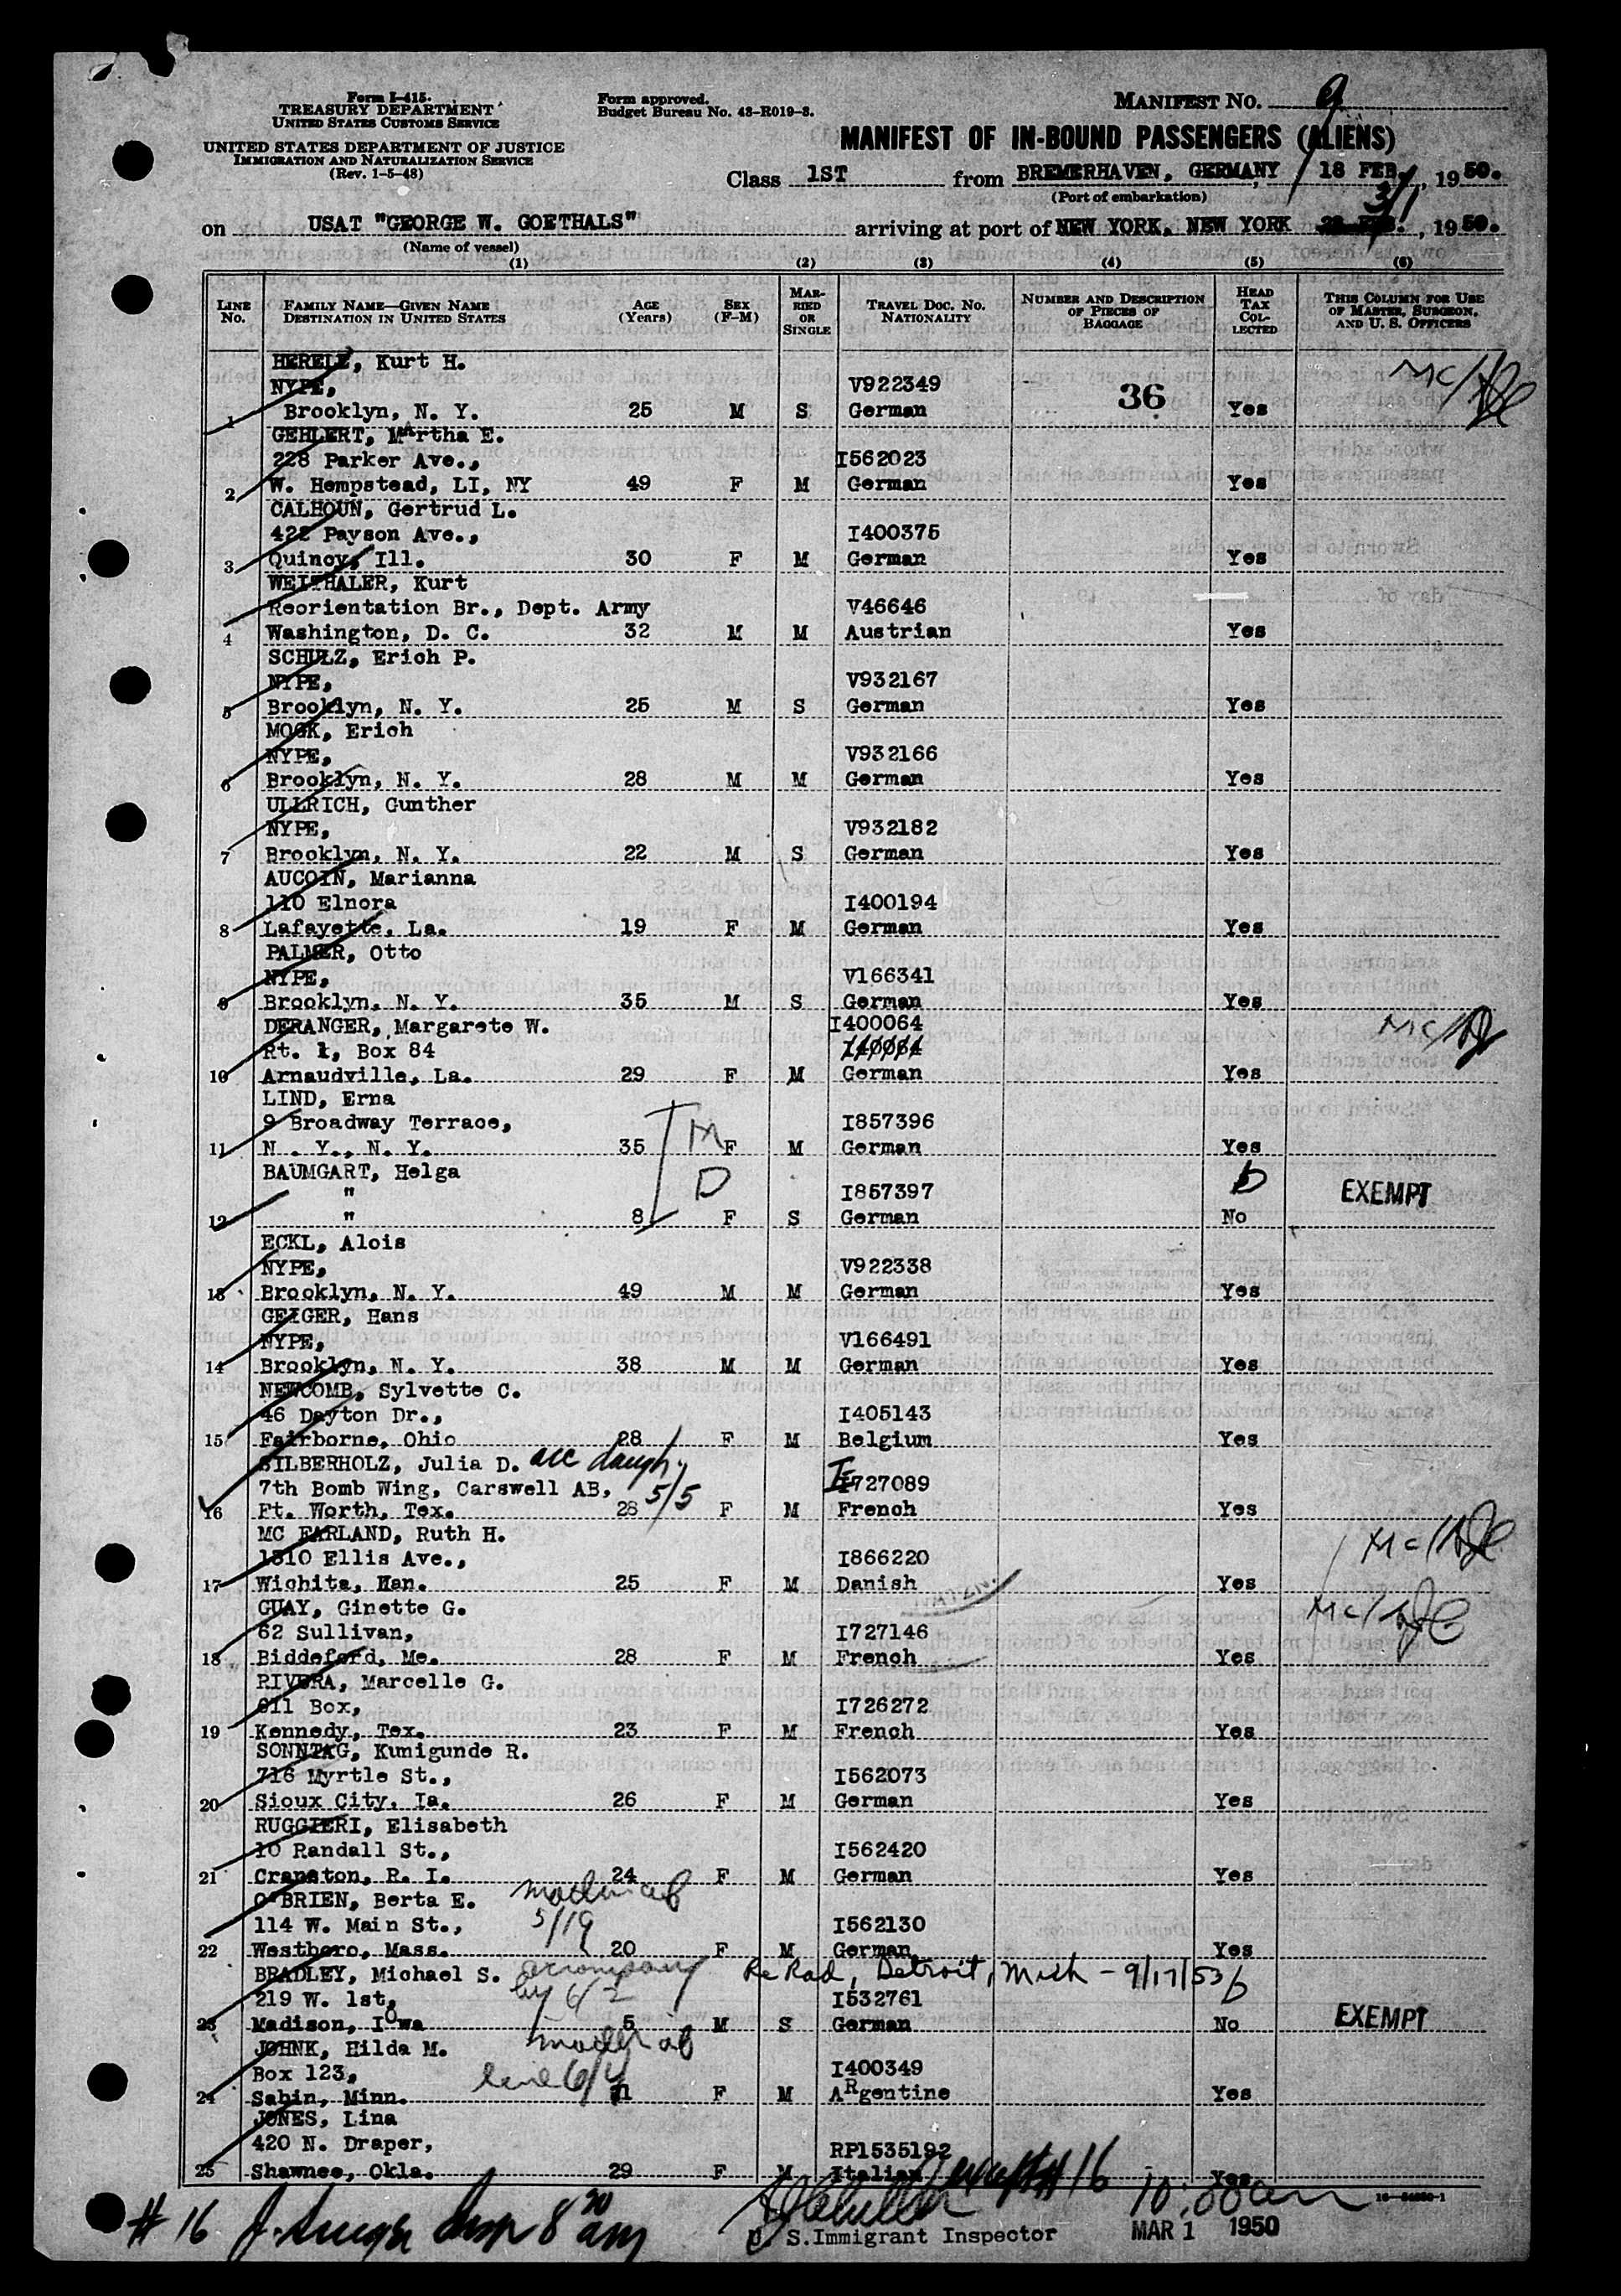 Form I-415.
TREASURY DEPARTMENT
UNITED STATES CUSTOMS SERVICE
UNITED STATES DEPARTMENT OF JUSTICE
IMMIGRATION AND NATURALIZATION SERVICE
(Rev. 1-5-48)
Form approved.
Budget Bureau No. 43-R019-3.
MANIFEST NO. 9
MANIFEST OF IN-BOUND PASSENGERS (ALIENS)
Class 1ST from BREMERHAVEN, GERMANY, 18 FEB., 1950.
(Port of embarkation)
3/1
on USAT "GEORGE W. GOETHALS" arriving at port of NEW YORK, NEW YORK FEB., 1950.
(Name of vessel)
(1) (2) (3) (4) (5) (6)
LINE NO. FAMILY NAME—GIVEN NAME DESTINATION IN UNITED STATES AGE (Years) SEX (F-M) MARRIED OR SINGLE TRAVEL DOC. NO. NATIONALITY NUMBER AND DESCRIPTION OF PIECES OF BAGGAGE HEAD TAX COLLECTED THIS COLUMN FOR USE OF MASTER, SURGEON, AND U. S. OFFICERS
HERELE, Kurt H.
NYPE, V922349
1 Brooklyn, N. Y. 25 M S German 36 Yes
GEHLERT, MArtha E.
228 Parker Ave., I562023
2 W. Hempstead, LI, NY 49 F M German Yes
CALHOUN, Gertrud L.
422 Payson Ave., I400375
3 Quincy, Ill. 30 F M German Yes
WEITHALER, Kurt
Reorientation Br., Dept. Army V46646
4 Washington, D. C. 32 M M Austrian Yes
SCHULZ, Erich P.
NYPE, V932167
5 Brooklyn, N. Y. 25 M S German Yes
MOCK, Erich
NYPE, V932166
6 Brooklyn, N. Y. 28 M M German Yes
ULLRICH, Gunther
NYPE, V932182
7 Brooklyn, N. Y. 22 M S German Yes
AUCOIN, Marianna
110 Elnora I400194
8 Lafayette, La. 19 F M German Yes
PALMER, Otto
NYPE, V166341
9 Brooklyn, N. Y. 35 M S German Yes
DERANGER, Margarete W. I400064
Rt. 1, Box 84
10 Arnaudville, La. 29 F M German Yes
LIND, Erna
9 Broadway Terrace, I857396
11 N. Y., N. Y. 35 F M German Yes
M
BAUMGART, Helga
D
" I857397 EXEMPT
12 " 8 F S German No
ECKL, Alois
NYPE, V922338
13 Brooklyn, N. Y. 49 M M German Yes
GEIGER, Hans
NYPE, V166491
14 Brooklyn, N. Y. 38 M M German Yes
NEWCOMB, Sylvette C.
46 Dayton Dr., I405143
15 Fairborne, Ohio 28 F M Belgium Yes
SILBERHOLZ, Julia D. acc daugh.
7th Bomb Wing, Carswell AB, 5/5 I727089
16 Ft. Worth, Tex. 28 F M French Yes
MC FARLAND, Ruth H.
1310 Ellis Ave., I866220
17 Wichita, Kan. 25 F M Danish Yes
GUAY, Ginette G.
62 Sullivan, I727146
18 Biddeford, Me. 28 F M French Yes
RIVERA, Marcelle G.
611 Box, I726272
19 Kennedy, Tex. 23 F M French Yes
SONNTAG, Kunigunde R.
716 Myrtle St., I562073
20 Sioux City, Ia. 26 F M German Yes
RUGGIERI, Elisabeth
10 Randall St., I562420
21 Cranston, R. I. 24 F M German Yes
O'BRIEN, Berta E.
114 W. Main St., 5/19 I562130
22 Westboro, Mass. 20 F M German Yes
BRADLEY, Michael S. accompany Re Rad, Detroit, Mich - 9/17/53
219 W. 1st, by 6/2 I532761 EXEMPT
23 Madison, IOwa 5 M S German No
JOHNK, Hilda M.
Box 123, line 6/4 I400349
24 Sabin, Minn. F M ARgentine Yes
JONES, Lina
420 N. Draper, RP1535192
25 Shawnee, Okla. 29 F M Italian Yes
except # 16
10:00 am
16-54550-1
# 16
U. S. Immigrant Inspector MAR 1 1950